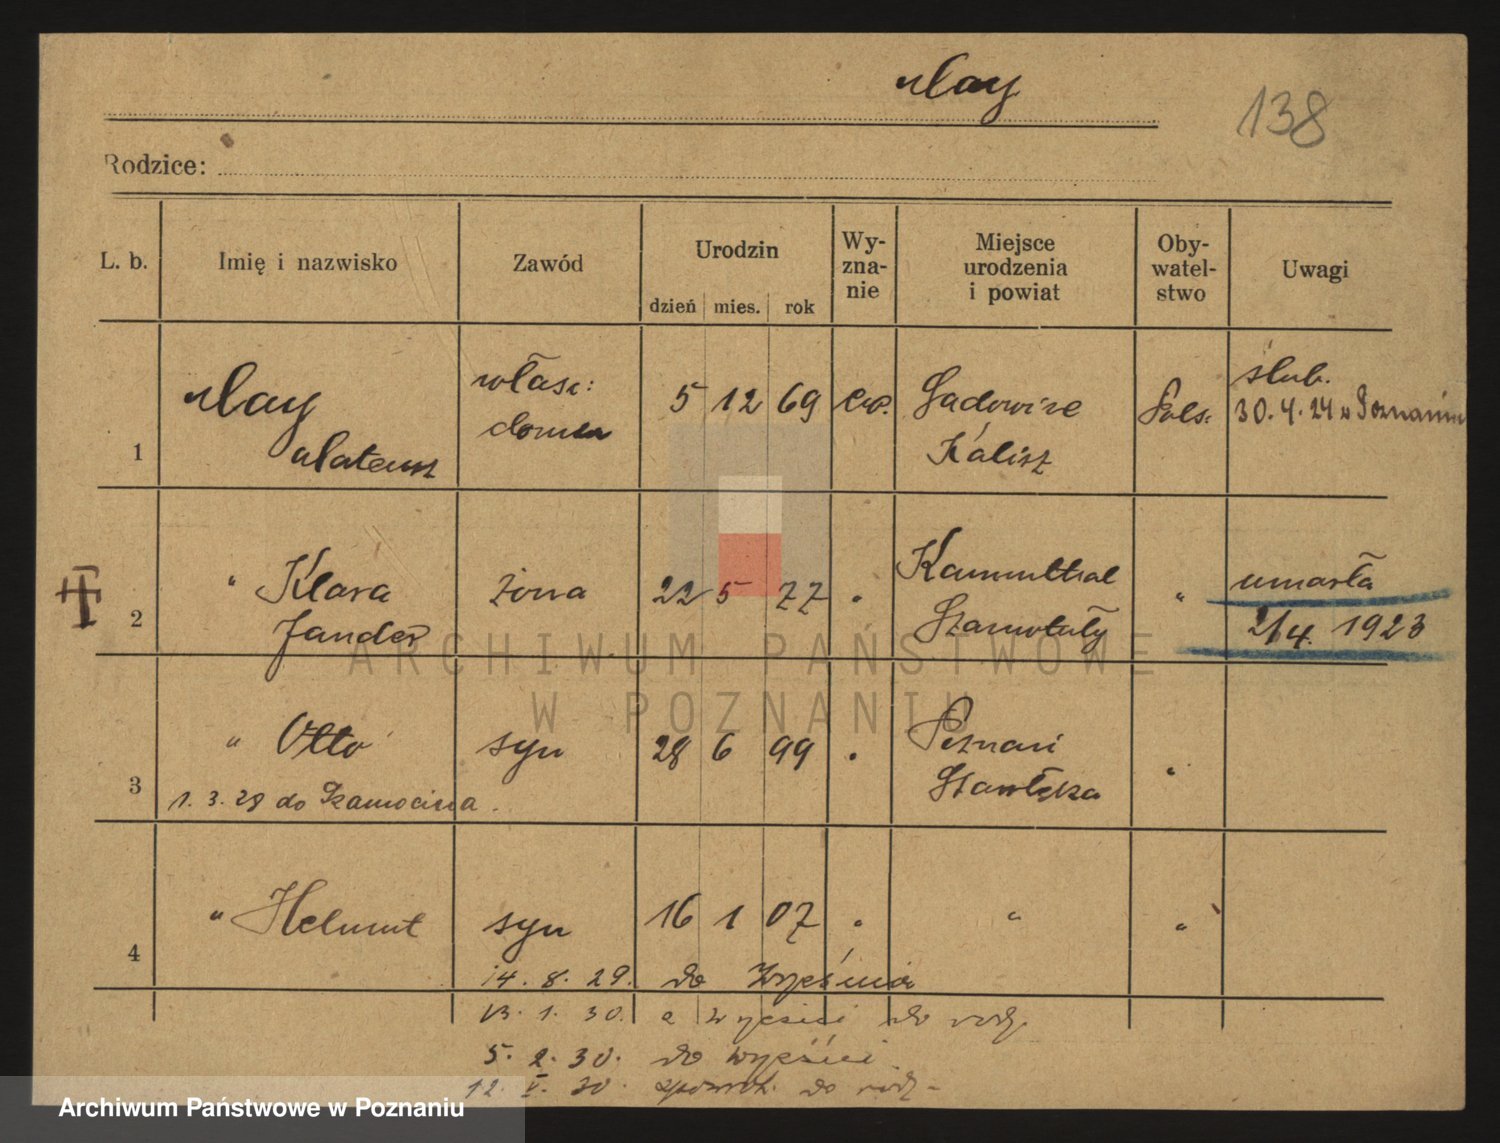 May
138
Rodzice:
L. b. Imię i nazwisko Zawód Urodzin dzień mies. rok Wy-zna-nie Miejsce urodzenia i powiat Oby-watel-stwo Uwagi
1 May Mateusz właśc: domu 5 12 69 ew. Kalisz Pols. ślub. 30. 4. 24 w Poznaniu
2 " Klara Jander żona 22 5 77 " Kammthal Szamotuły " umarła 2/4. 1923
3 " Otto syn 28 6 99 " Poznań "
1. 3. 28 do Szamocina.
4 " Helmut syn 16 1 07 " " "
14. 8. 29. do Września
13. 1. 30. z Wrześni do rodz.
5. 2. 30. do Wrześni
12. V. 30. do rodz.
ARCHIWUM PAŃSTWOWE
W POZNANIU
Archiwum Państwowe w Poznaniu